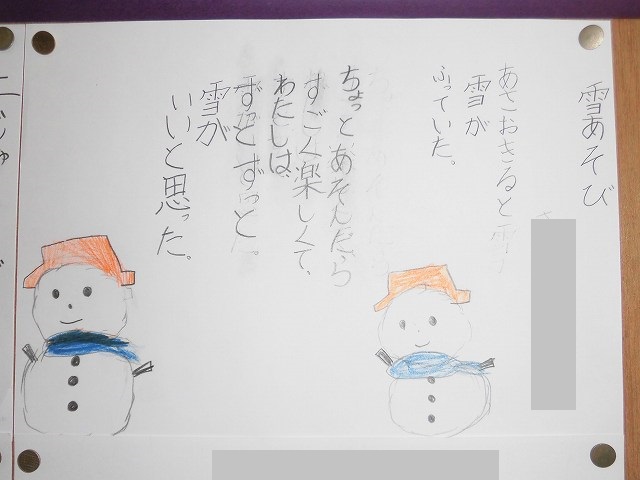 雪あそび
あさおきると
雪が
ふっていた。
ちょっとあそんだら
すごく楽しくて、
わたしは、
ずっとずっと。
雪が
いいと思った。